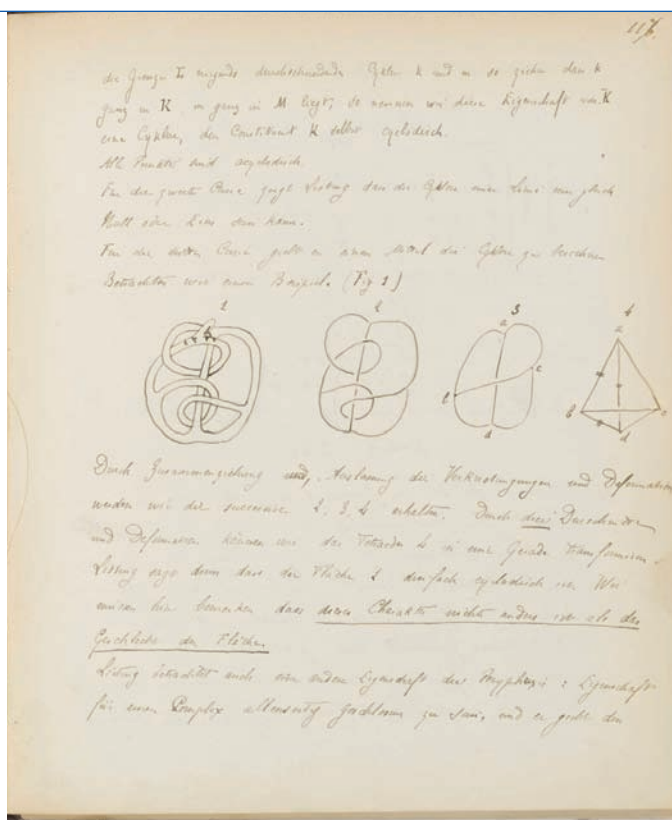 117.
die Grenze nirgends durchschneidende k und m so ziehen dass k
ganz in K, m ganz in M liegt; so nennen wir diese Eigenschaft von K
eine Cyklose, den Constituent K selbst cyclodisch.
Alle Punkte sind acyclodisch.
Für die zweite Curie zeigt Listing dass die Cyklose einer Linie nur gleich
Null oder Eins sein kann.
Für die dritte Curie giebt er einen Mittel die Cyklose zu berechnen
Betrachten wir einen Beispiel. (Fig 1)
1 2 3 4
a a
c
b b c
d d
Durch Zusammenziehung und, Auslassung der Verknotungen und Deformation
werden wir die successive 2, 3, 4 erhalten. Durch drei
und Deformation können wir das Tetraeder 4 in eine Gerade transformieren.
Listing sagt denn dass die Fläche 1 dreifach cyclodisch sei. Wir
müssen hier bemerken dass dieser Charakter nichts anders ist als das
Geschlecht der Flächen.
Listing betrachtet auch eine andere Eigenschaft der : Eigenschaft
für einen Complex allerseitig geschlossen zu sein, und er giebt den